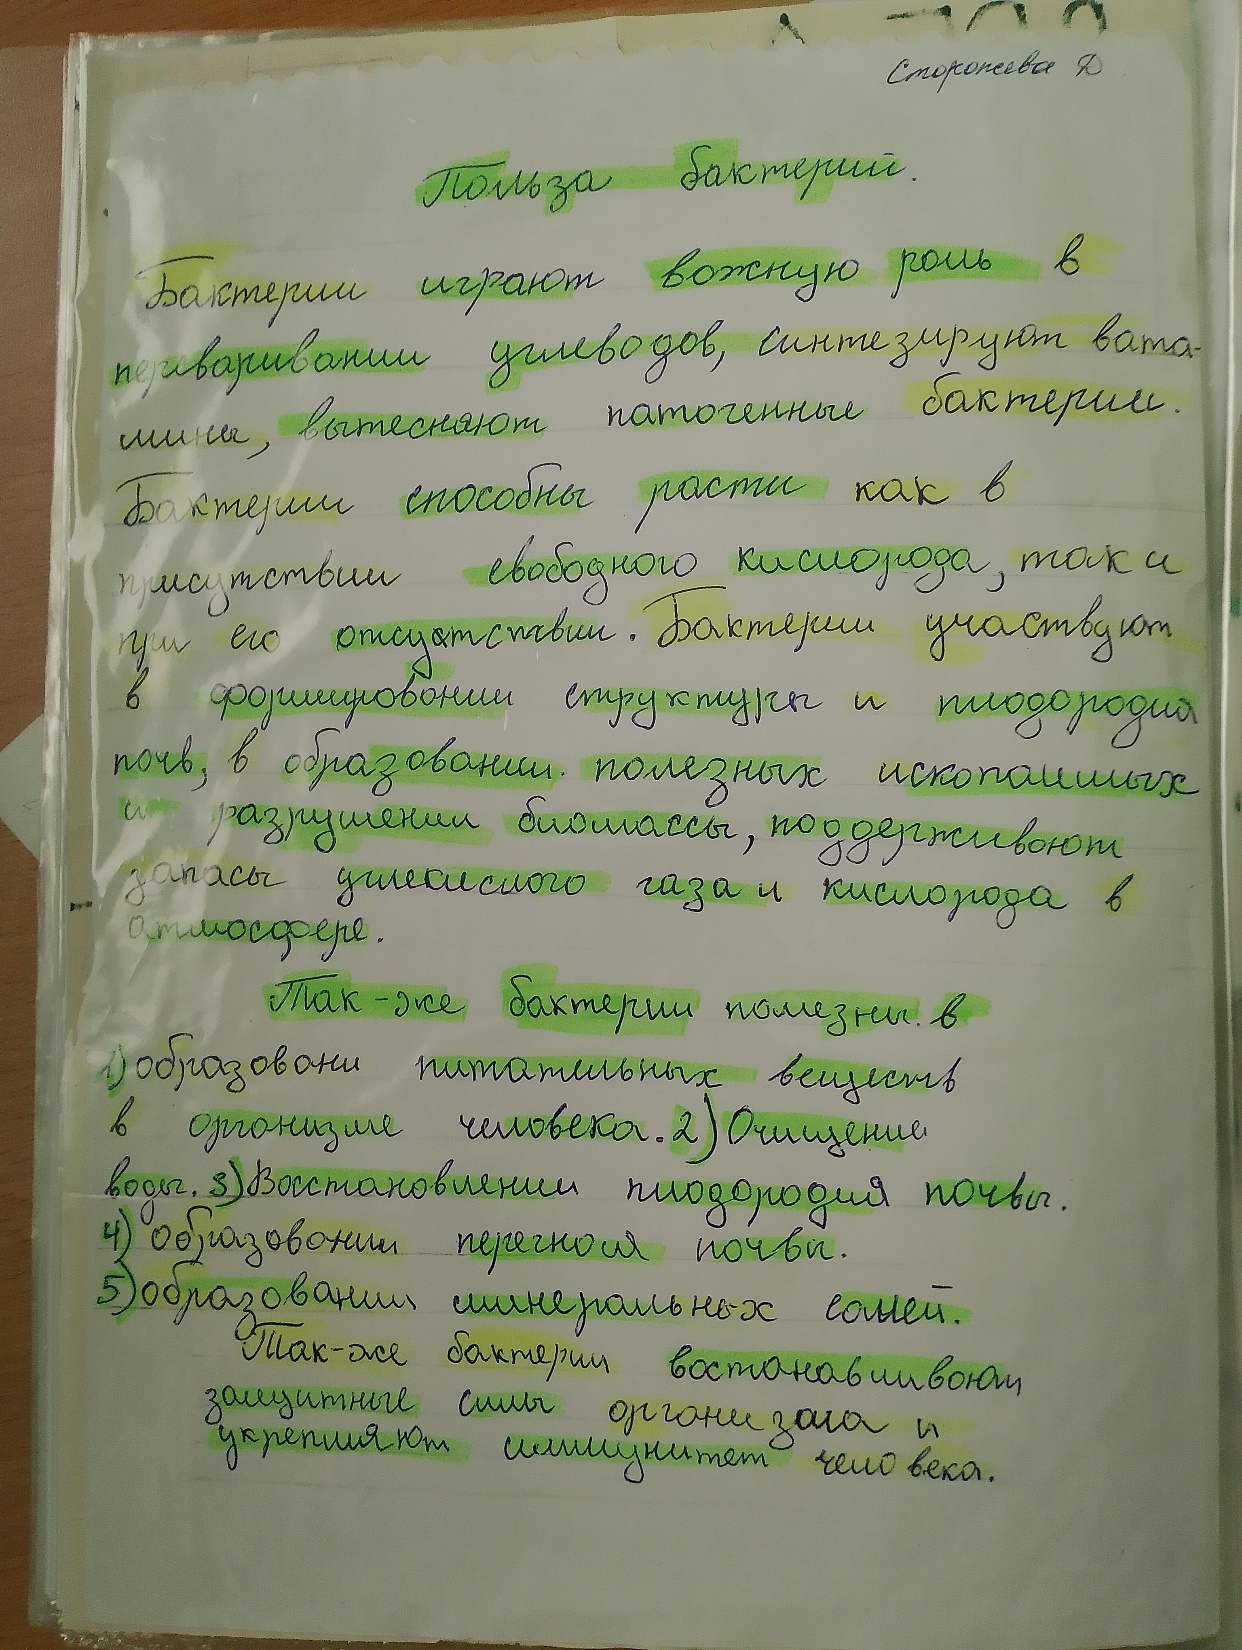 Сторожева Д
Польза бактерий.
Бактерии играют вожную роль в
переваривании углеводов, синтезируют вата-
мины, вытесняют патогенные бактерии.
Бактерии способны расти как в
присутствии свободного кислорода, так и
при его отсутствии. Бактерии участвуют
в формировании структуры и плодородия
почв, в образовании. полезных ископаимых
и разрушении биомассы, поддерживают
запасы углекислого газа и кислорода в
атмосфере.
Так-же бактерии полезны. в
1) образовани питательных веществ
в организме человека. 2) Очищение
воды. 3) Восстановлении плодородия почвы.
4) образовании перегноя почвы.
5) образовании минеральных солей.
Так-же бактерии востанавливают
защитные силы организма и
укрепляют иммунитет человека.